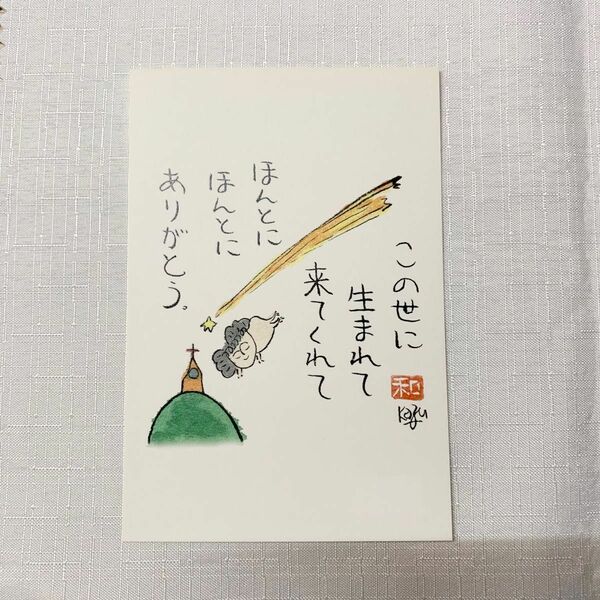 この世に
生まれて
来てくれて
ほんとに
ほんとに
ありがとう。
和
Kazu